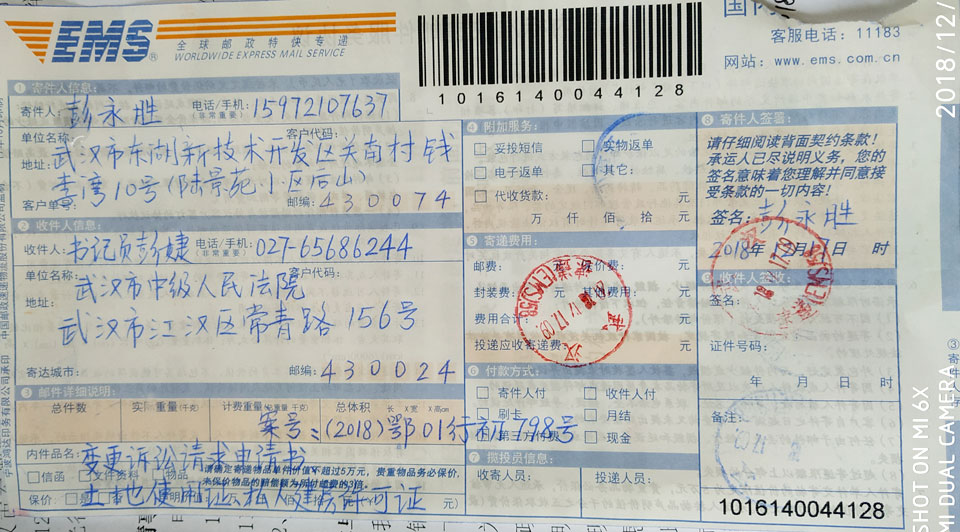 EMS®
全球邮政特快专递
WORLDWIDE EXPRESS MAIL SERVICE
1016140044128
客服电话：11183
网站：www.ems.com.cn
2018/12/
① 寄件人信息：
寄件人：彭永胜 电话/手机：15972107637
（非常重要）
单位名称： 客户代码：
地址：武汉市东湖新技术开发区关南村钱
湾10号（陆景苑小区后山）
客户单号： 邮编：430074
② 收件人信息
收件人：书记员彭婕 电话/手机：027-65686244
（非常重要）
单位名称： 客户代码：
武汉市中级人民法院
地址：
武汉市江汉区常青路156号
寄达城市： 邮编：430024
③ 邮件详细说明：
总件数 实际重量（千克） 计费重量（千克） 总体积 长 X宽 X高cm
案号：(2018)鄂01行初798号
内件品名：变更诉讼请求申请书
信函 文件资料 物品 请确定寄递物品单件价值不超过5万元，贵重物品务必保价，
未保价物品的赔偿额为所付邮费的3倍
保价： 元）
土地使用证、私人建房许可证
④ 附加服务：
妥投短信 实物返单
电子返单 其它：
代收货款： 元
万 仟 佰 拾 元
⑤ 寄递费用：
邮费： 元 保价费： 元
封装费： 元 其他费用： 元
费用合计： 元
投递应收寄递费： 元
⑥ 付款方式：
寄件人付 收件人付
刷卡 月结
第三方付费 现金
⑦ 揽投员信息：
收寄人员： 投递人员：
⑧ 寄件人签署：
请仔细阅读背面契约条款！
承运人已尽说明义务，您的
签名意味着您理解并同意接
受条款的一切内容！
签名：彭永胜
2018年12月17日 时
⑨ 收件人签收：
签名：
证件号码：
年 月 日 时
备注：
1016140044128
SHOT ON MI 6X
MI DUAL CAMERA